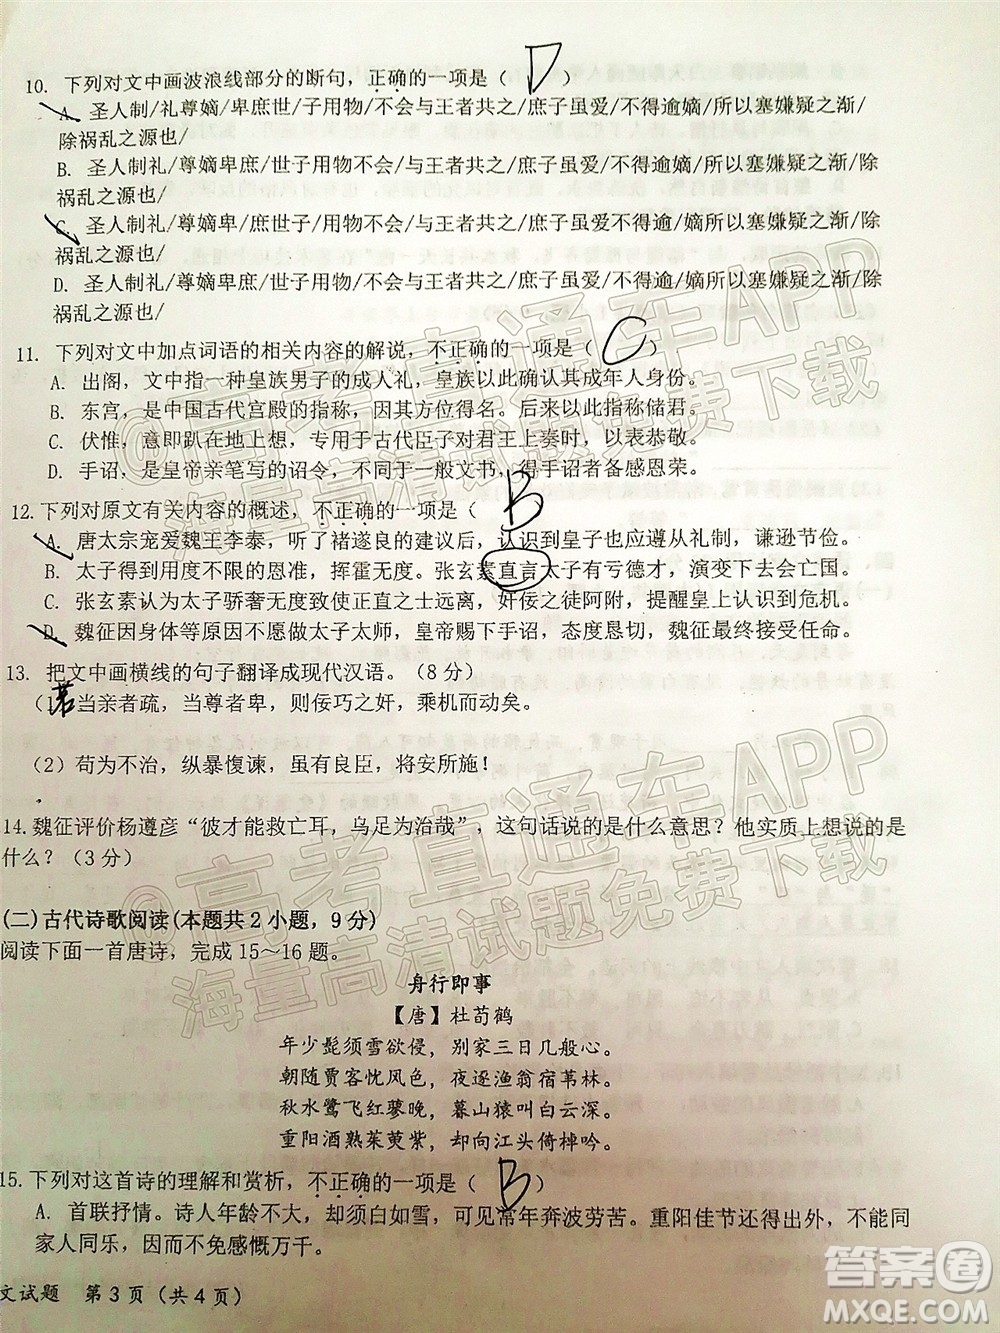 10. 下列对文中画波浪线部分的断句，正确的一项是（ D ）
A. 圣人制/礼尊嫡/卑庶世/子用物/不会与王者共之/庶子虽爱/不得逾嫡/所以塞嫌疑之渐/
除祸乱之源也/
B. 圣人制礼/尊嫡卑庶/世子用物不会/与王者共之/庶子虽爱/不得逾嫡/所以塞嫌疑之渐/除
祸乱之源也/
C. 圣人制礼/尊嫡卑/庶世子用物/不会与王者共之/庶子虽爱/不得逾/嫡所以塞嫌疑之渐/除
祸乱之源也/
D. 圣人制礼/尊嫡卑庶/世子用物不会/与王者共之/庶子虽爱/不得逾/嫡所以塞嫌疑之渐/除
祸乱之源也/
11. 下列对文中加点词语的相关内容的解说，不正确的一项是（ C ）
A. 出阁，文中指一种皇族男子的成人礼，皇族以此确认其成年人身份。
B. 东宫，是中国古代宫殿的指称，因其方位得名。后来以此指称储君。
C. 伏惟，意即趴在地上想，专用于古代臣子对君王上奏时，以表恭敬。
D. 手诏，是皇帝亲笔写的诏令，不同于一般文书，得手诏者备感恩荣。
12. 下列对原文有关内容的概述，不正确的一项是（ B ）
A. 唐太宗宠爱魏王李泰，听了褚遂良的建议后，认识到皇子也应遵从礼制，谦逊节俭。
B. 太子得到用度不限的恩准，挥霍无度。张玄素直言太子有亏德才，演变下去会亡国。
C. 张玄素认为太子骄奢无度致使正直之士无缘, 奸佞之徒阿附，提醒皇上认识到危机。
D. 魏征因身体等原因不愿做太子太师，皇帝赐予手诏，恳切劝慰，魏征最终接受任命。
13. 把文中画横线的句子翻译成现代汉语。（8 分）
（1）若当亲者疏，当尊者卑，则佞巧之奸，乘机而动矣。
（2）苟为不治，纵暴愎谏，虽有良臣，将安所施！
14. 魏征评价杨遵彦“彼才能救亡耳，乌足为治哉”，这句话说的是什么意思？他实质上想说的是
什么？（3 分）
(二)古代诗歌阅读(本题共 2 小题，9 分)
阅读下面一首唐诗，完成 15～16 题。
舟行即事
【唐】杜荀鹤
年少髭须雪欲侵，别家三日几般心。
朝随贾客忧风色，夜逐渔翁宿苇林。
秋水鹭飞红蓼晚，暮山猿叫白云深。
重阳酒熟茱萸紫，却向江头倚棹吟。
15. 下列对这首诗的理解和赏析，不正确的一项是（ B ）
A. 首联抒情。诗人年龄不大，却须白如雪，可见常年奔波劳苦。重阳佳节还得出外，不能同
家人同乐，诗人不免感慨万千。
文试题 第 3 页（共 4 页）
@高考直通车APP
海量高清试题免费下载
@高考直通车APP
海量高清试题免费下载
答案圈
MXQE.COM